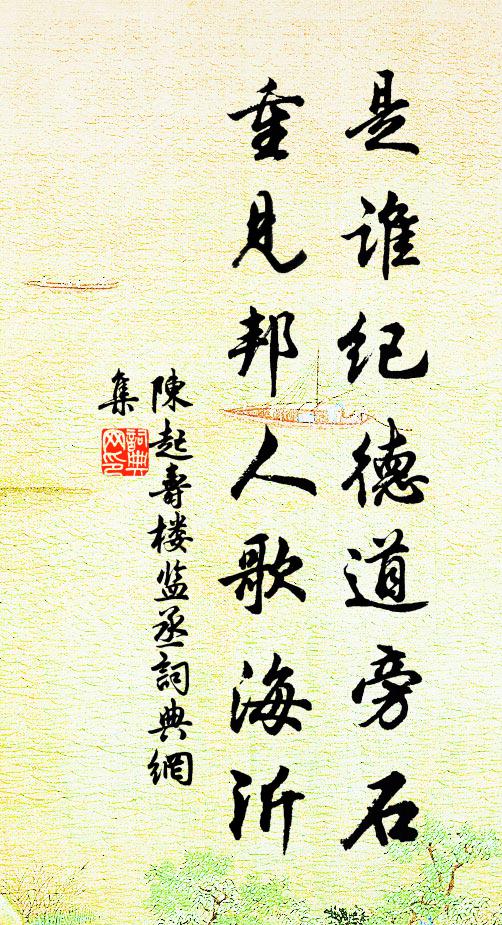 是谁纪德道旁石
重见邦人歌海沂
陳起壽楼监丞詞典網
集
詞典网印